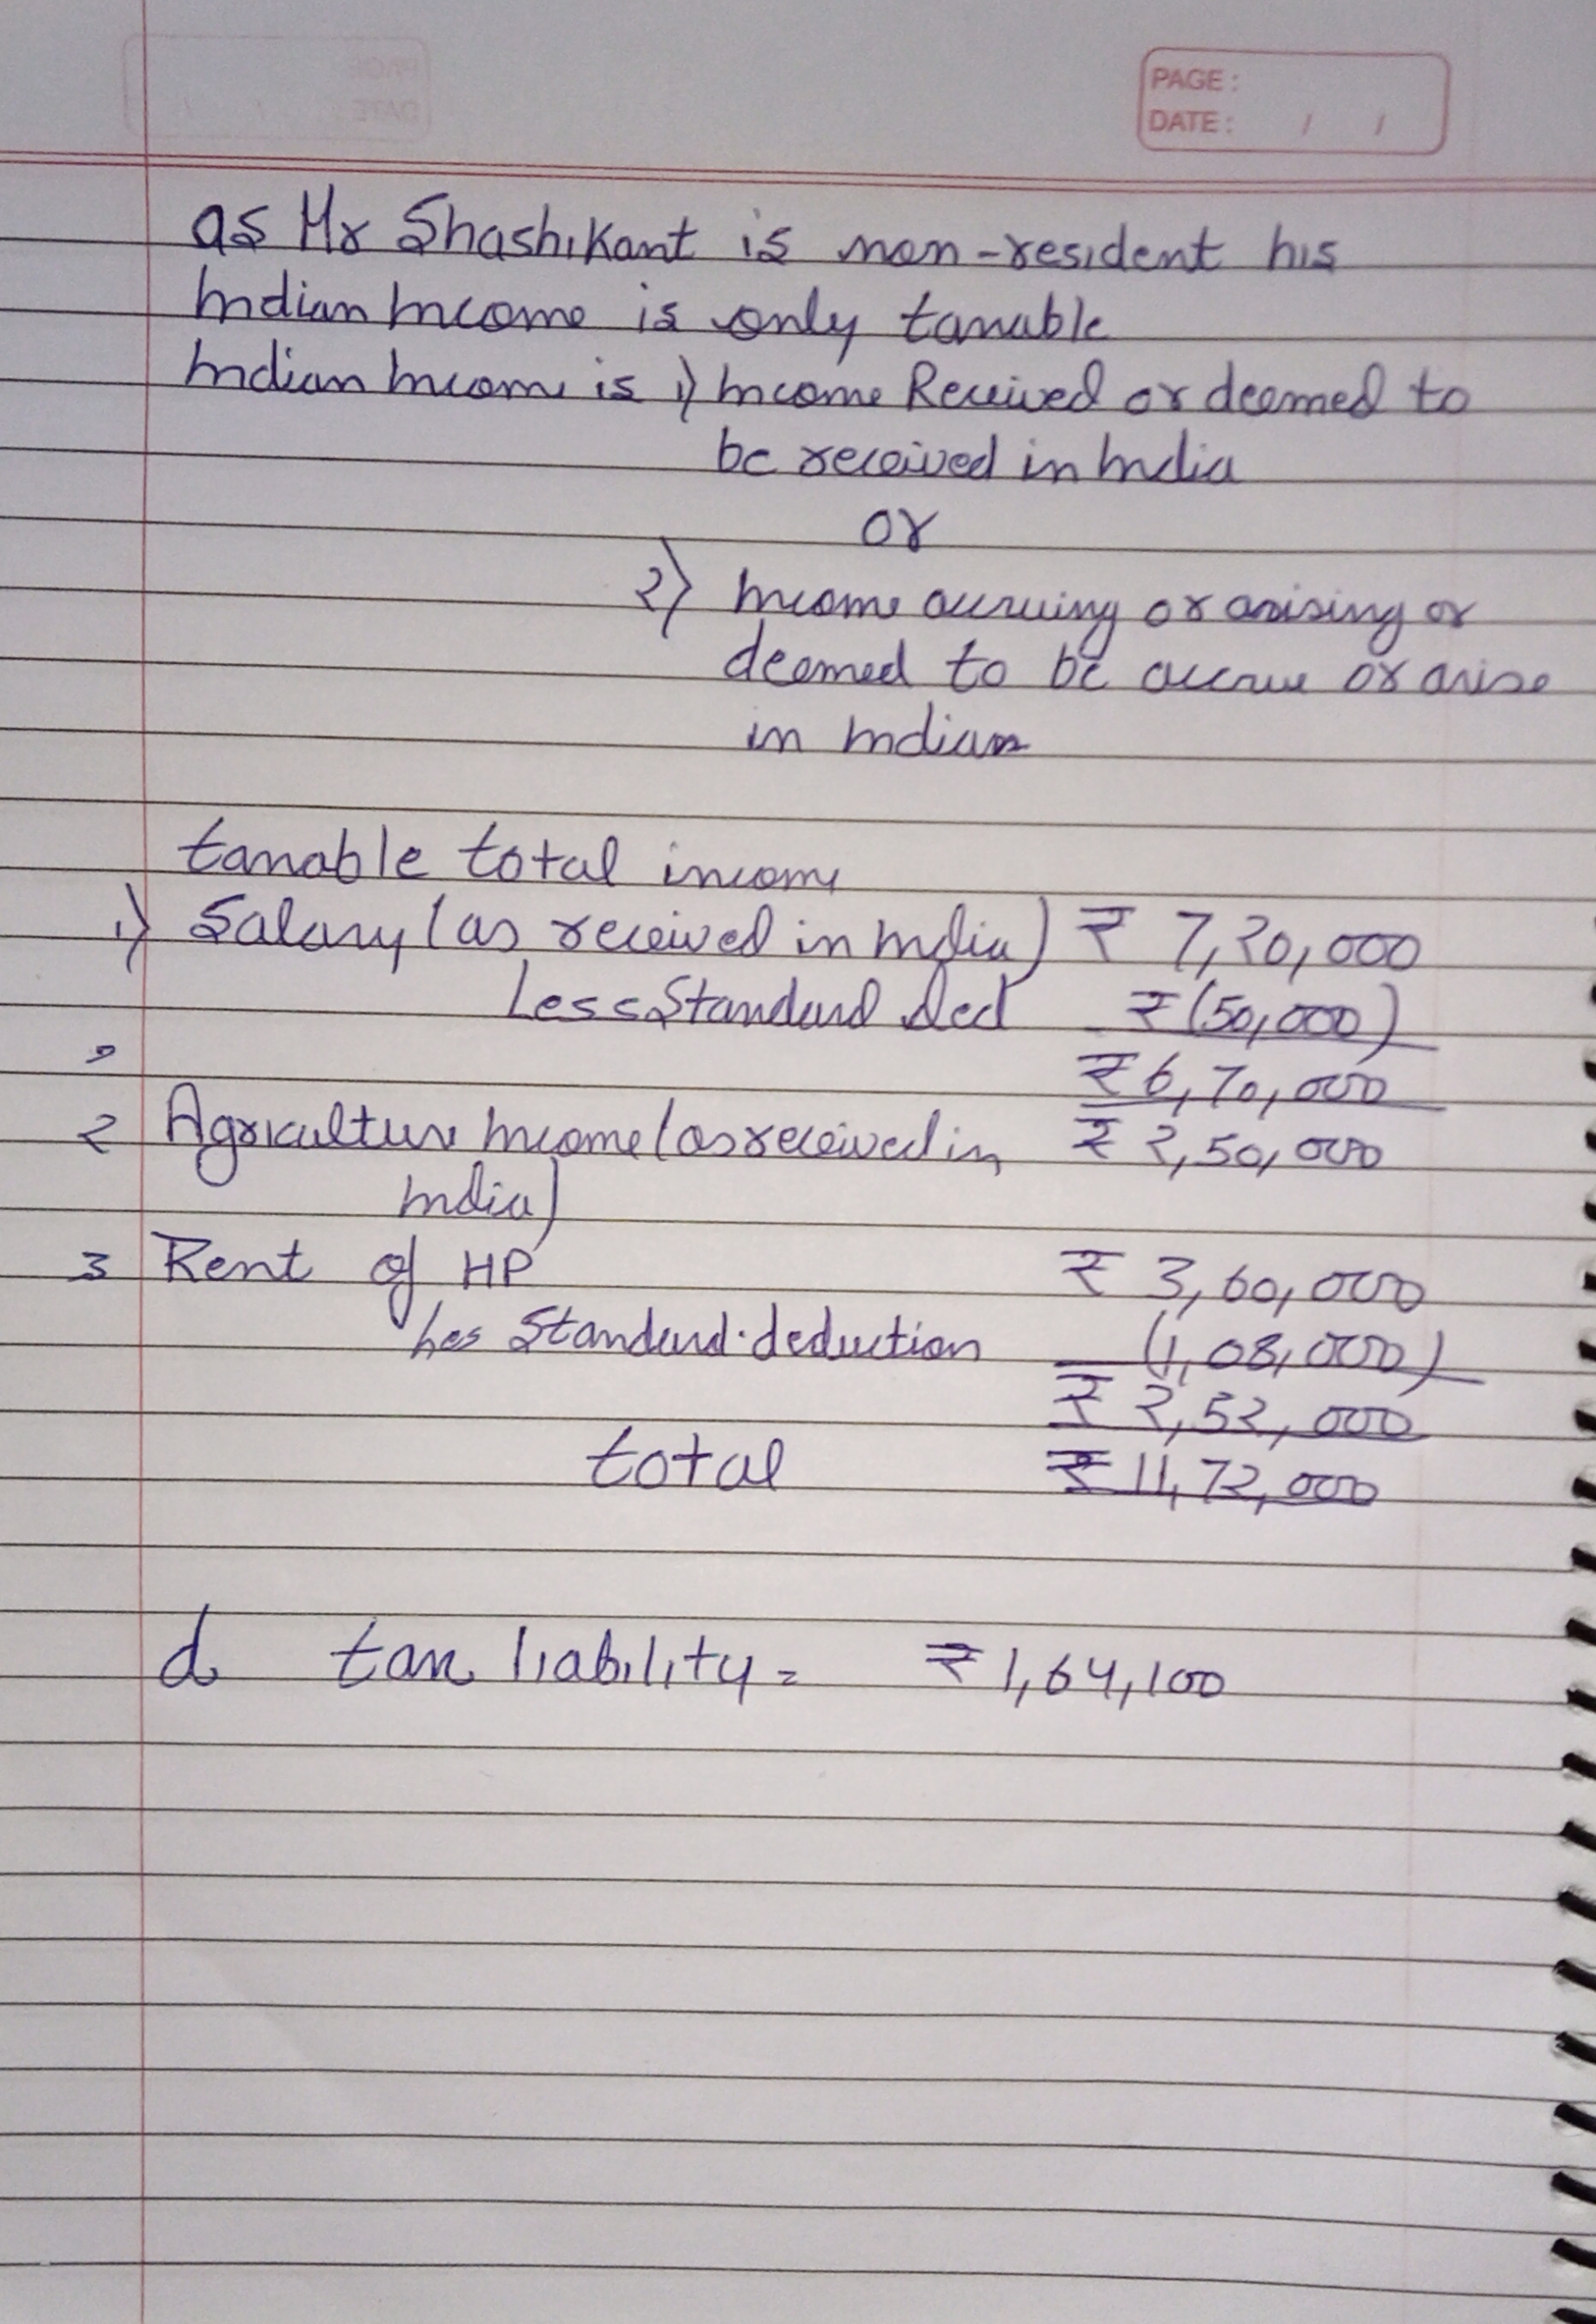 PAGE :
DATE : / /
as Mr Shashikant is non-resident his
Indian Income is only taxable
Indian Income is 1) Income Received or deemed to
be received in India
or
2) Income accruing or arising or
deemed to be accrue or arise
in Indian
taxable total income
1) Salary (as received in India) ₹ 7,20,000
Less Standard Ded ₹ (50,000)
₹ 6,70,000
2 Agriculture Income (as received in ₹ 2,50,000
India)
3 Rent of HP ₹ 3,60,000
Les Standard deduction (1,08,000)
₹ 2,52,000
total ₹ 11,72,000
d tax liability = ₹ 1,64,100